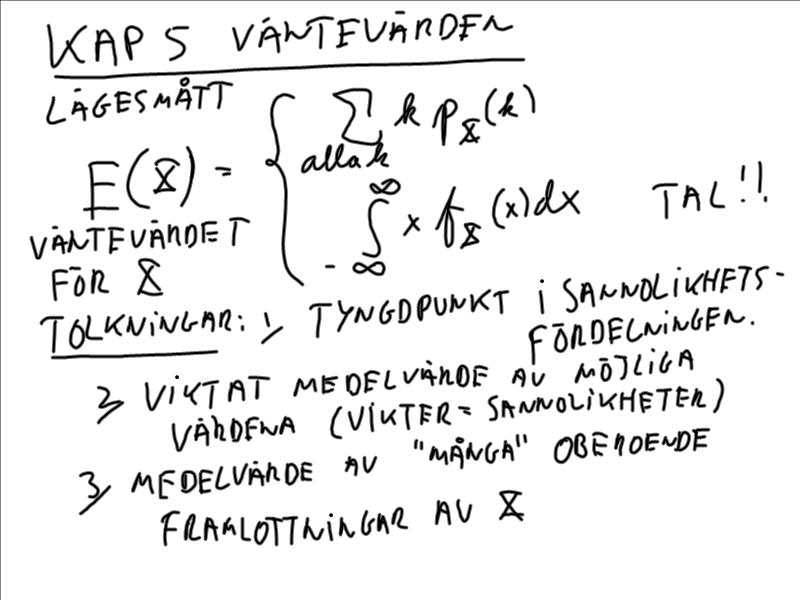 KAP 5 VÄNTEVÄRDEN
LÄGESMÅTT
E(X) = { ∑ k p_X(k)
alla k
∞
∫ x f_X(x)dx TAL!!
-∞
VÄNTEVÄRDET
FÖR X
TOLKNINGAR: 1) TYNGDPUNKT I SANNOLIKHETS-
FÖRDELNINGEN.
2) VIKTAT MEDELVÄRDE AV MÖJLIGA
VÄRDENA (VIKTER = SANNOLIKHETER)
3) MEDELVÄRDE AV "MÅNGA" OBEROENDE
FRAMLOTTNINGAR AV X